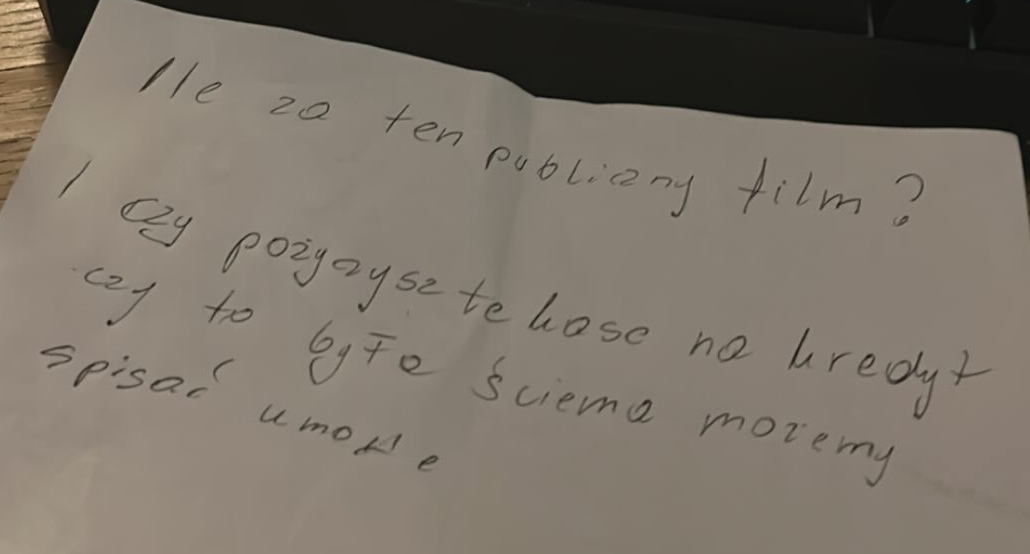 Ile za ten publiczny film?
I czy pożyczysz te kase na kredyt
czy to była ściema możemy
spisać umowe